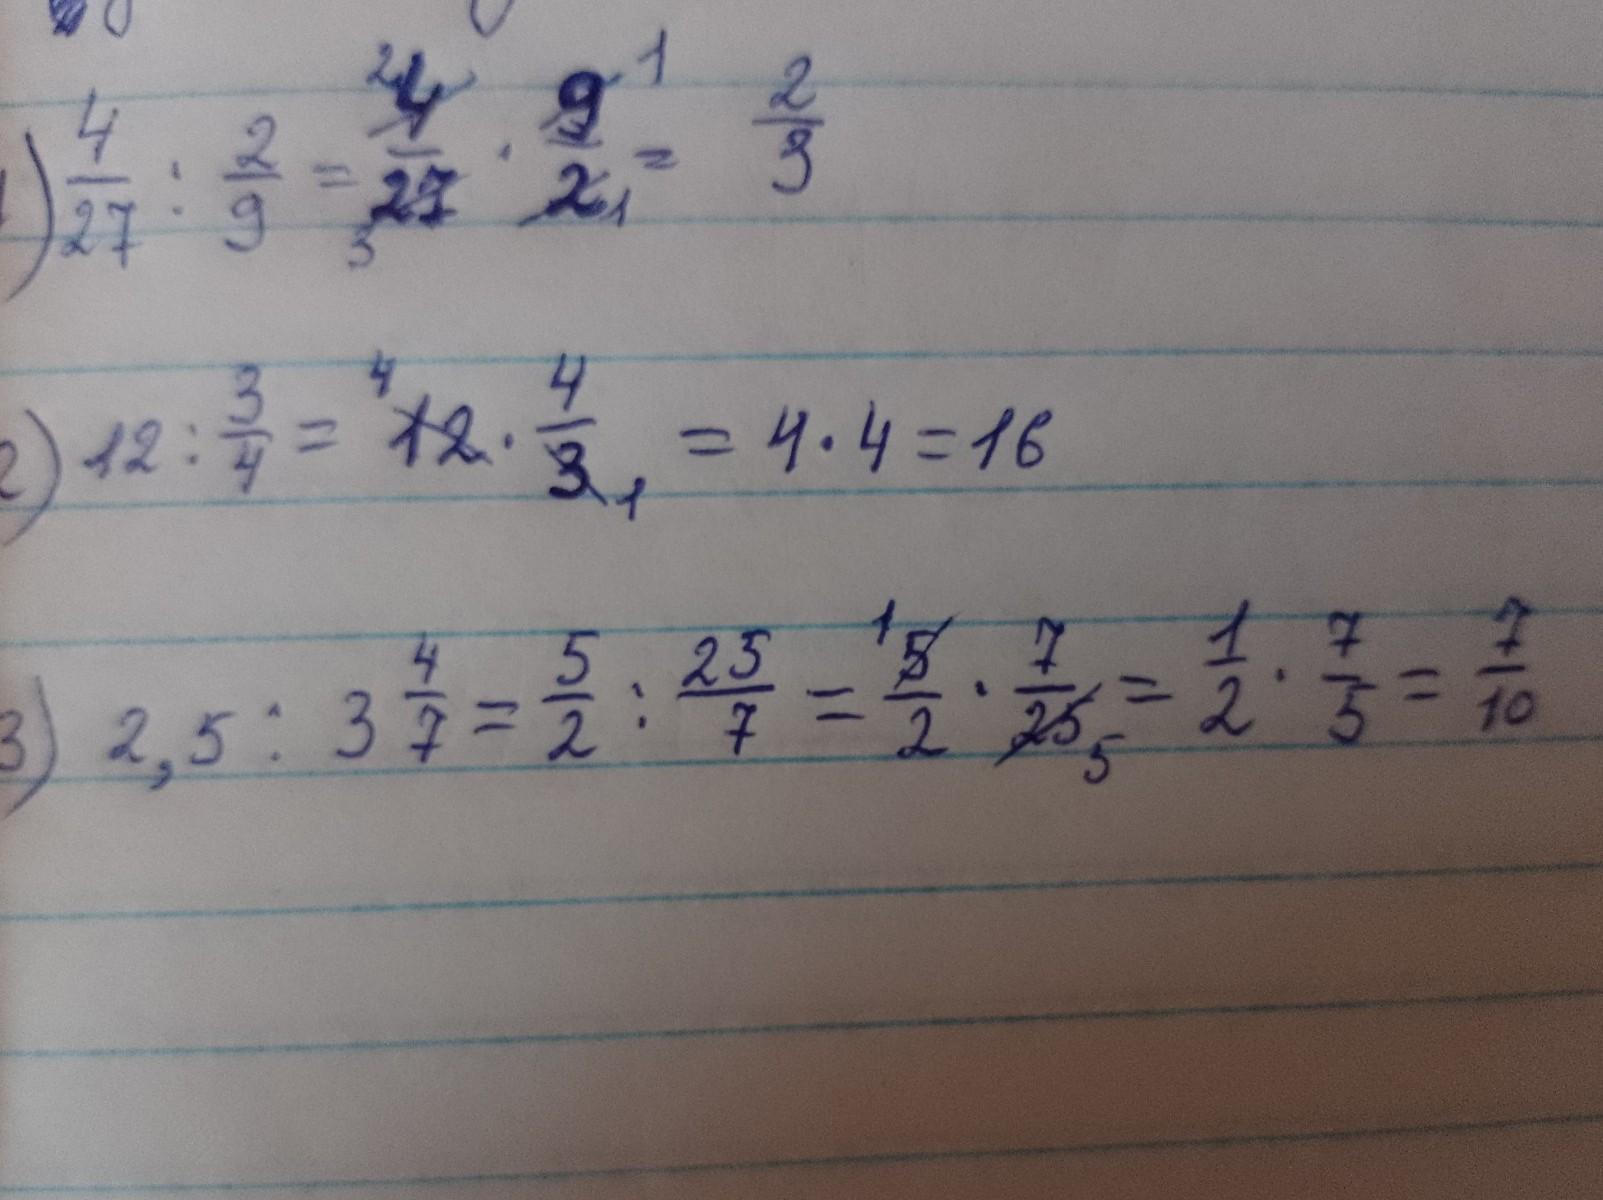 1) 4/27 : 2/9 = 4/27 · 9/2 = 2/3
2) 12 : 3/4 = 12 · 4/3 = 4 · 4 = 16
3) 2,5 : 3 4/7 = 5/2 : 25/7 = 5/2 · 7/25 = 1/2 · 7/5 = 7/10